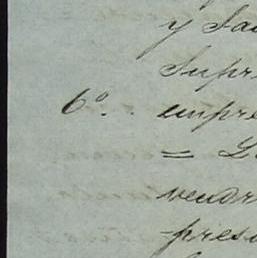 y Sa
Supr
6º. empre
= L
vendr
pres